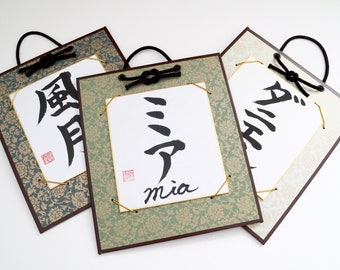 風月
ミア
mia
ダニエ